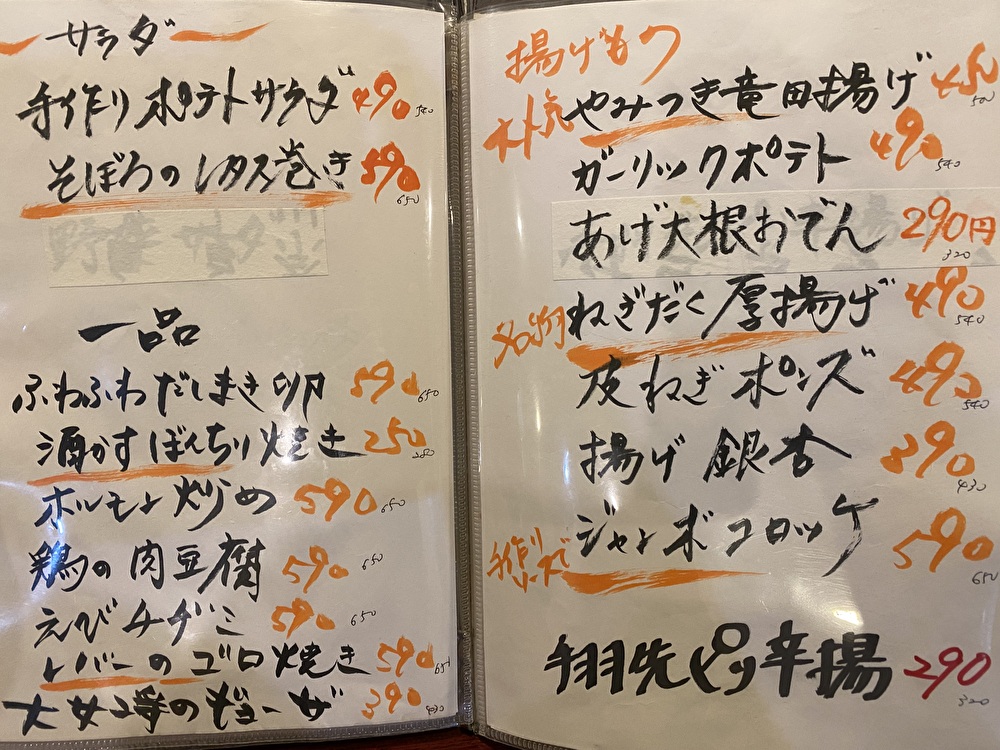 サラダ
手作りポテトサラダ 490 540
そぼろのレタス巻き 590 650
一品
ふわふわだしまき卵 590 650
酒かすぼんちり焼き 250 280
ホルモン炒め 590 650
鶏の肉豆腐 590 650
えびチヂミ 590 650
レバーのゴロ焼き 590 650
のギョーザ 390 430
揚げもの
大人気 やみつき竜田揚げ 450 500
ガーリックポテト 490 540
あげ大根おでん 290円 320
名物 ねぎだく厚揚げ 490 540
皮ねぎポンズ 490 540
揚げ銀杏 390 430
手作りソースで ジャンボコロッケ 590 650
手羽先ピリ辛揚 290 320